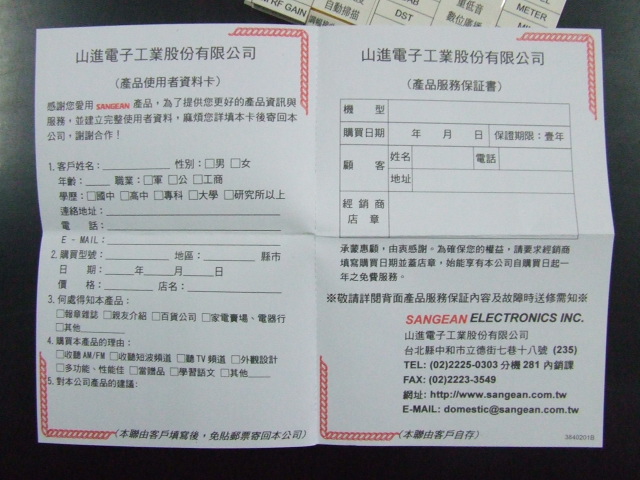 RF GAIN
自動掃描
DST
重低音
數位廣播
METER
山進電子工業股份有限公司
(產品使用者資料卡)
感謝您愛用 SANGEAN 產品，為了提供您更好的產品資訊與
服務，並建立完整使用者資料，麻煩您詳填本卡後寄回本
公司，謝謝合作！
1.客戶姓名： 性別：□男 □女
年齡： 職業：□軍 □公 □工商
學歷：□國中 □高中 □專科 □大學 □研究所以上
連絡地址：
電話：
E-MAIL：
2.購買型號： 地區： 縣市
日期： 年 月 日
價格： 店名：
3.何處得知本產品：
□報章雜誌 □親友介紹 □百貨公司 □家電賣場、電器行
□其他
4.購買本產品的理由：
□收聽AM/FM □收聽短波頻道 □聽TV頻道 □外觀設計
□多功能、性能佳 □當贈品 □學習語文 □其他
5.對本公司產品的建議：
(本聯由客戶填寫後，免貼郵票寄回本公司)
山進電子工業股份有限公司
(產品服務保証書)
機型
購買日期 年 月 日 保證期限：壹年
顧客 姓名 電話
地址
經銷商
店章
承蒙惠顧，由衷感謝。為確保您的權益，請要求經銷商
填寫購買日期並蓋店章，始能享有本公司自購買日起一
年之免費服務。
※敬請詳閱背面產品服務保証內容及故障時送修需知※
SANGEAN ELECTRONICS INC.
山進電子工業股份有限公司
台北縣中和市立德街七巷十八號 (235)
TEL: (02)2225-0303 分機 281 內銷課
FAX: (02)2223-3549
網址: http://www.sangean.com.tw
E-MAIL: domestic@sangean.com.tw
(本聯由客戶自存)
3840201B